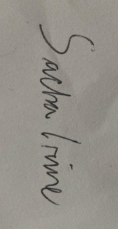 Sacha Irvine